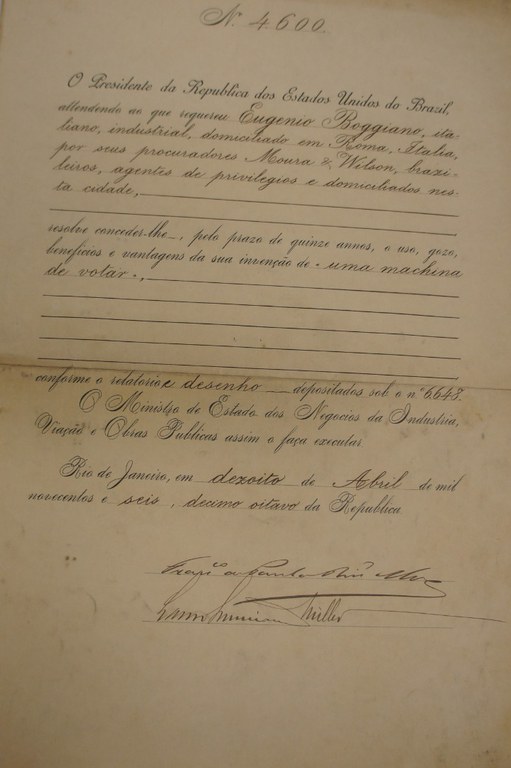 Nº 4.600.
O Presidente da Republica dos Estados Unidos do Brazil,
attendendo ao que requereu Eugenio Boggiano, ita-
liano, industrial, domiciliado em Roma, Italia,
por seus procuradores Moura & Wilson, brazi-
leiros, agentes de privilegios e domiciliados nes-
ta cidade,
resolve conceder-lhe, pelo prazo de quinze annos, o uso, gozo,
beneficios e vantagens da sua invenção de "uma machina
de votar",
conforme o relatorio e desenho depositados sob o nº 6.648.
O Ministro de Estado dos Negocios da Industria,
Viação e Obras Publicas assim o faça executar
Rio de Janeiro, em dezoito de Abril de mil
novecentos e seis, decimo oitavo da Republica
Müller